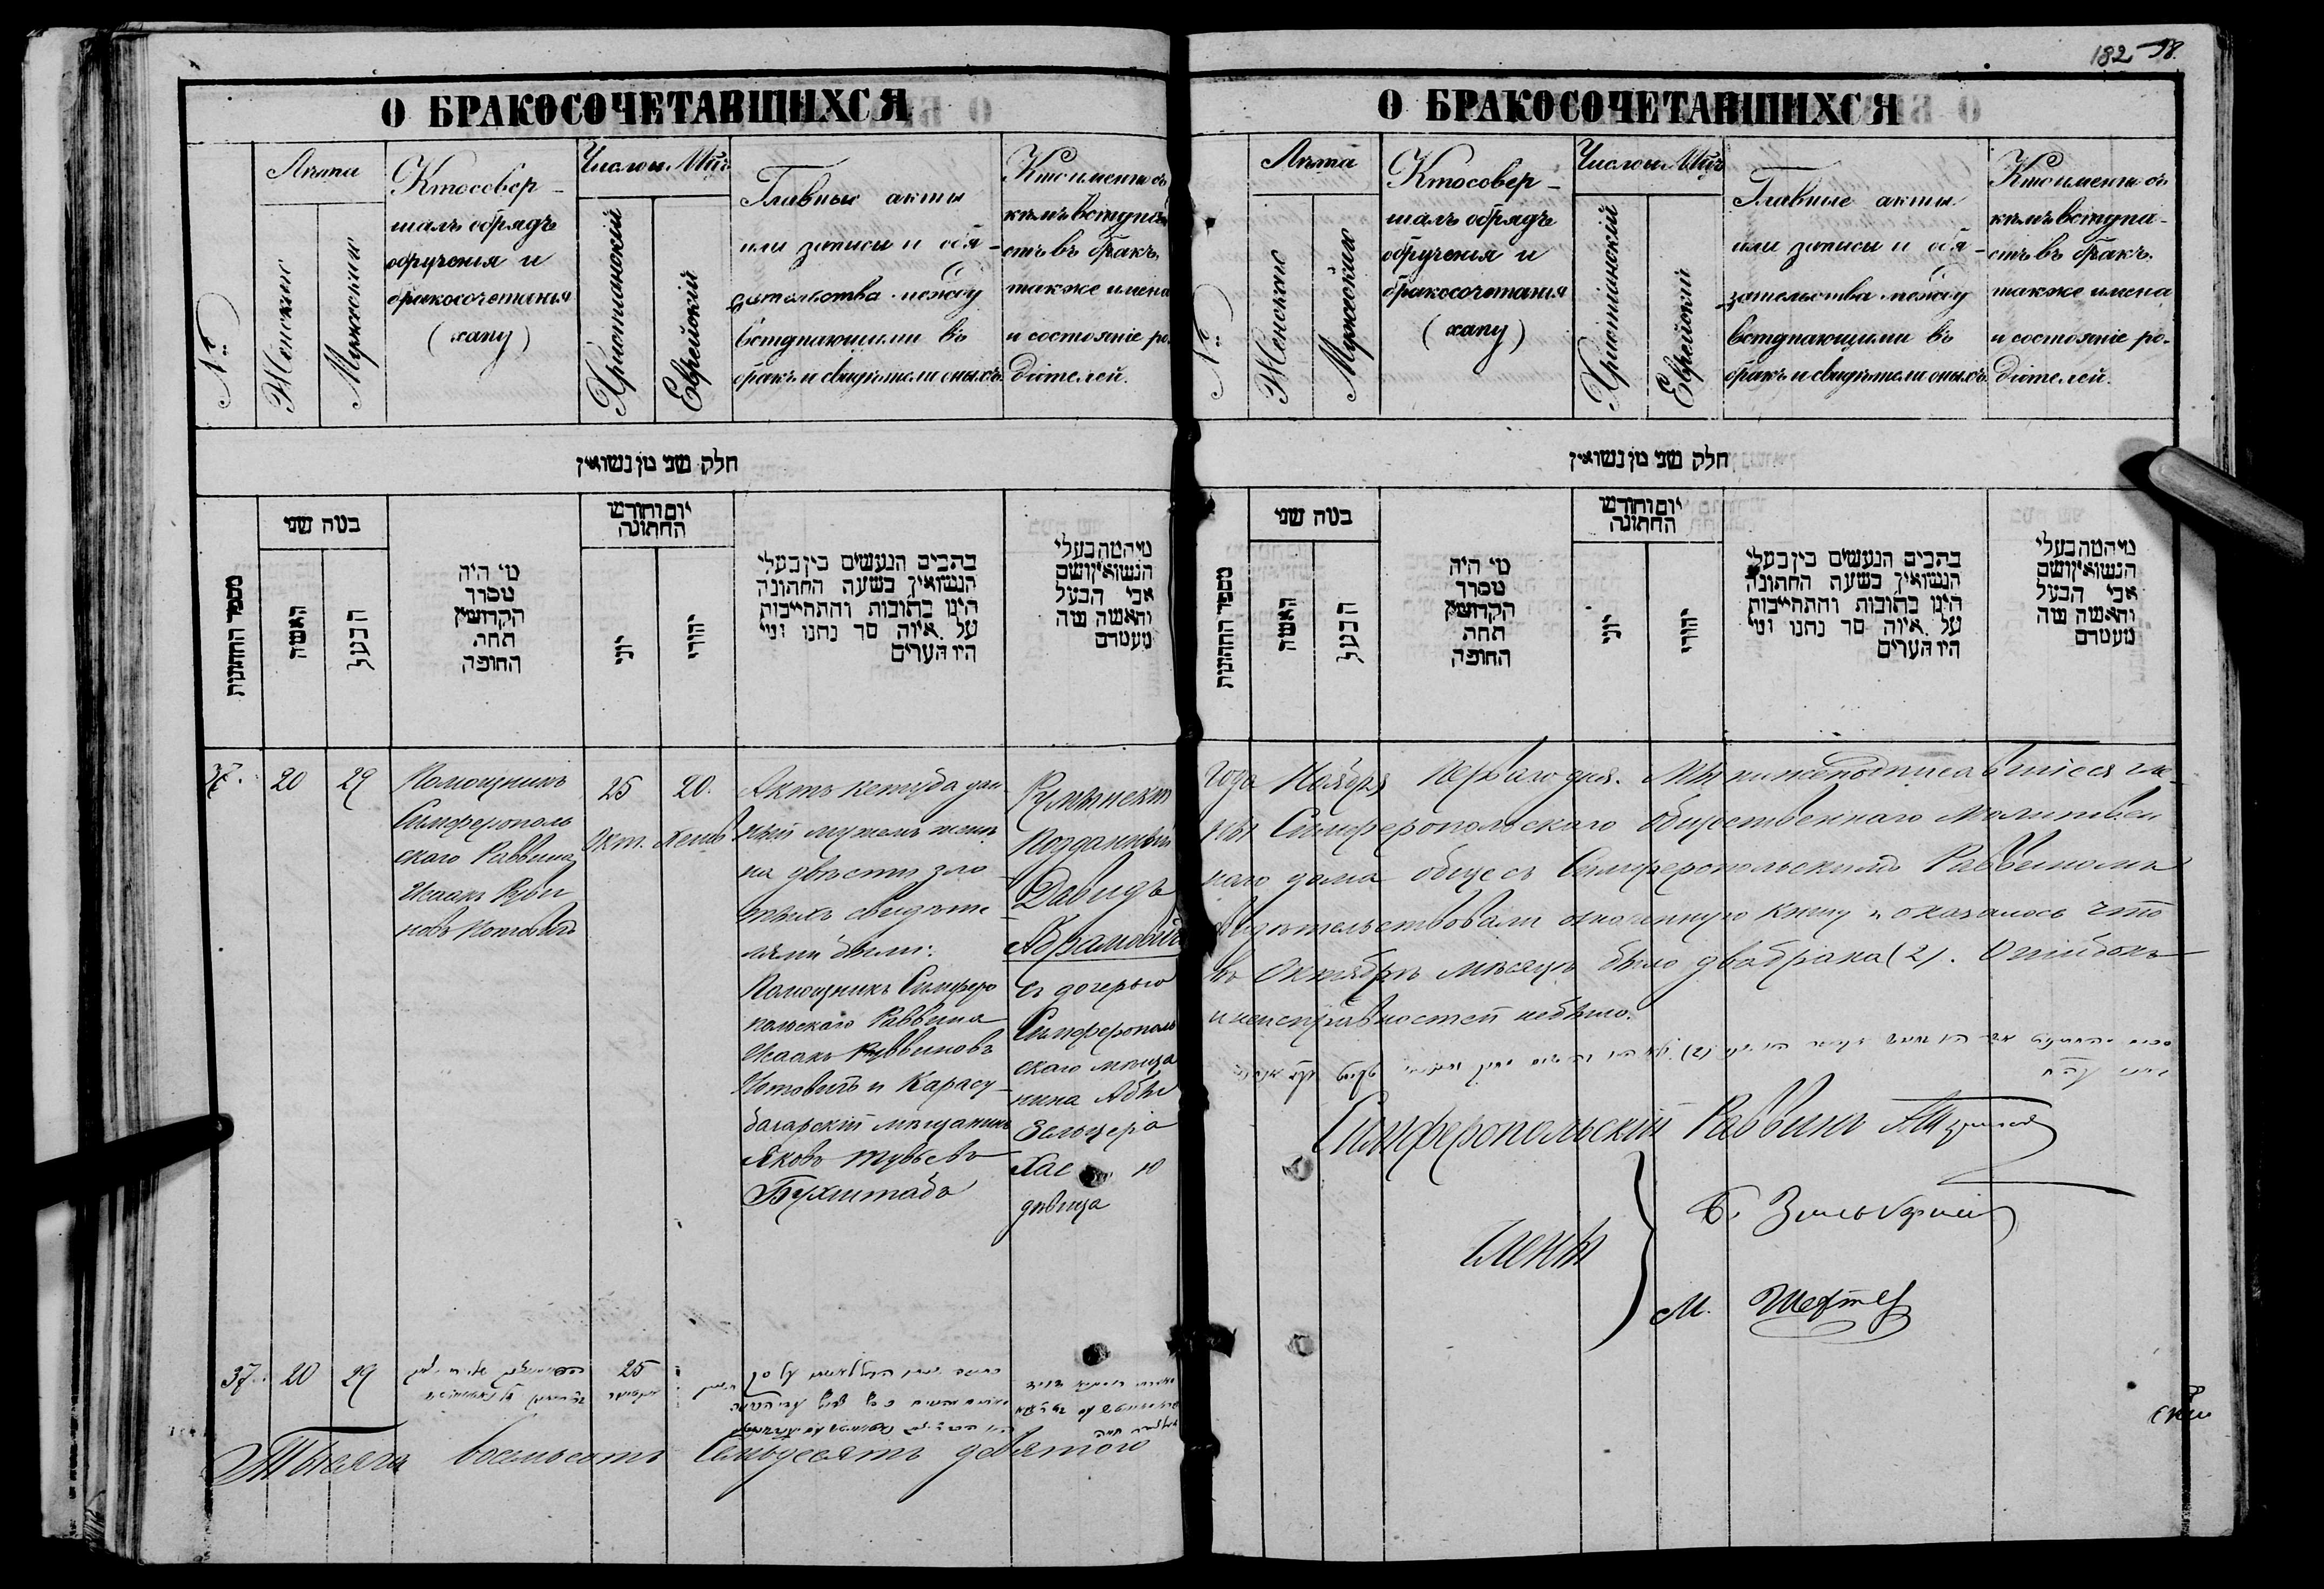 182 98.
О БРАКОСОЧЕТАВШИХСЯ
№
Лѣта
Женскіе
Мужескіе
Кто совер-
шалъ обрядъ
обрученія и
бракосочетанія
(хапу)
Число и Мцъ
Христіанскій
Еврейскій
Главные акты
или записи и обя-
зательства между
вступающими въ
бракъ и свидѣтели оныхъ.
Кто именно съ
кѣмъ вступа-
етъ въ бракъ,
также имена
и состояніе ро-
дителей.
חלק שני מן נשואין
מספר החתונות
כמה שני
האשה
הבעל
מי היה
מסדר
הקדושין
תחת
החופה
יום וחודש
החתונה
יוני
יהודי
כתבים הנעשים בין בעלי
הנשואין בשעה החתונה
היינו כתובות והתחייבות
על איזה סך נתנו ומי
היו העדים
מי המה בעלי
הנשואין ושם
אבי הבעל
והאשה מה
מעמדם
37. 20 29
Помощникъ
Симферополь
скаго Раввина
Исаакъ Руви
новъ
25
Окт.
20.
Хешв
Актъ кетуба дан
ный мужемъ женѣ
на двѣсти зло
тыхъ свидѣте
лями были:
Помощникъ Симферо
польскаго Раввина
Исаакъ Рувиновъ
и Карасу
базарскій мѣщанинъ
Яковъ Тувьевъ
Бухштабъ
Румынскій
Подданный
Давидъ
Абрамовичъ
съ дочерью
Симферополь
скаго мѣща
нина Абы
Зельцера
Хас ю
дѣвица
37. 20 29
25
Тысяча восемьсотъ семьдесятъ девятого
О БРАКОСОЧЕТАВШИХСЯ
№
Лѣта
Женскіе
Мужескіе
Кто совер-
шалъ обрядъ
обрученія и
бракосочетанія
(хапу)
Число и Мцъ
Христіанскій
Еврейскій
Главные акты
или записи и обя-
зательства между
вступающими въ
бракъ и свидѣтели оныхъ.
Кто именно съ
кѣмъ вступа-
етъ въ бракъ.
также имена
и состояніе ро-
дителей.
חלק שני מן נשואין
מספר החתונות
כמה שני
האשה
הבעל
מי היה
מסדר
הקדושין
תחת
החופה
יום וחודש
החתונה
יוני
יהודי
כתבים הנעשים בין בעלי
הנשואין בשעה החתונה
היינו כתובות והתחייבות
על איזה סך נתנו ומי
היו העדים
מי המה בעלי
הנשואין ושם
אבי הבעל
והאשה מה
מעמדם
года Ноября Перваго дня. Мы нижеподписавшіеся чле
ны Симферопольскаго Общественнаго Молитвен
наго дома обще съ Симферопольскимъ Раввиномъ
свидѣтельствовали означенную книгу и оказалось что
въ Октябрѣ мѣсяцѣ было два брака (2). Ошибокъ
и неисправностей небыло.
(2)
Симферопольскій Раввинъ
Члены
Б.
М. Шефтель